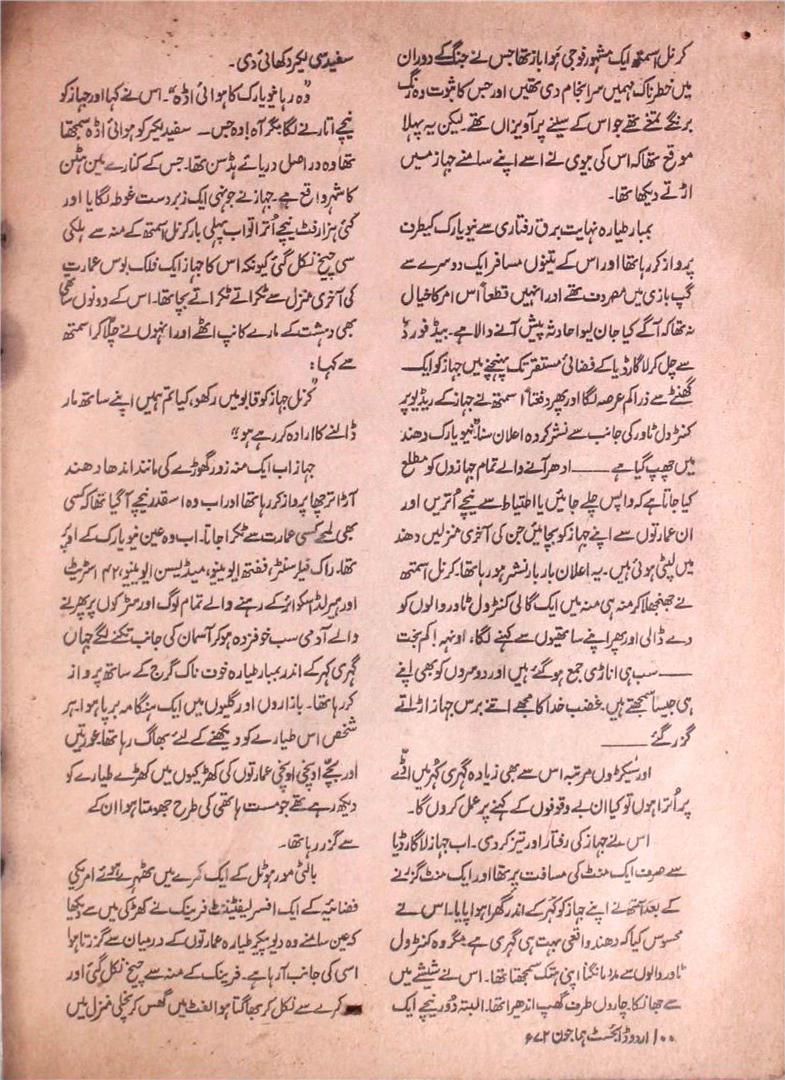 کرنل اسمتھ ایک مشہور فوجی ہوا باز تھا جس نے جنگ کے دوران
میں خطرناک مہمیں سر انجام دی تھیں اور جس کا ثبوت وہ رنگ
برنگے تمغے تھے جو اس کے سینے پر آویزاں تھے۔ لیکن یہ پہلا
موقع تھا کہ اس کی بیوی نے اسے اپنے سامنے جہاز میں
اڑتے دیکھا تھا۔
بمبار طیارہ نہایت برق رفتاری سے نیویارک کیطرف
پرواز کر رہا تھا اور اس کے تینوں مسافر ایک دوسرے سے
گپ بازی میں مصروف تھے اور انہیں قطعاً اس امر کا خیال
نہ تھا کہ آگے کیا جان لیوا حادثہ پیش آنے والا ہے۔ بیڈ فورڈ
سے چل کر لاگارڈیا کے فضائی مستقر تک پہنچنے میں جہاز کو ایک
گھنٹے سے ذرا کم عرصہ لگا اور پھر دفعتاً اسمتھ نے جہاز کے ریڈیو پر
کنٹرول ٹاور کی جانب سے نشر کردہ اعلان سنا۔ ”نیویارک دھند
میں چھپ گیا ہے ——— ادھر آنے والے تمام جہازوں کو مطلع
کیا جاتا ہے کہ واپس چلے جائیں یا احتیاط سے نیچے اُتریں اور
ان عمارتوں سے اپنے جہاز کو بچائیں جن کی آخری منزلیں دھند
میں لپٹی ہوئی ہیں۔ یہ اعلان بار بار نشر ہو رہا تھا۔ کرنل اسمتھ
نے جھنجھلا کر منہ ہی منہ میں ایک گالی کنٹرول ٹاور والوں کو
دے ڈالی اور پھر اپنے ساتھیوں سے کہنے لگا، اونہہ! کم بخت
—— سب ہی اناڑی جمع ہو گئے ہیں اور دوسروں کو بھی اپنے
ہی جیسا سمجھتے ہیں۔ غضب خدا کا مجھے اتنے برس جہاز اڑاتے
گزر گئے ———
اور سینکڑوں مرتبہ اس سے بھی زیادہ گہری کُہر میں اڈّے
پر اُترا ہوں تو کیا ان بے وقوفوں کے کہنے پر عمل کروں گا۔
اس نے جہاز کی رفتار اور تیز کر دی۔ اب جہاز لاگارڈیا
سے صرف ایک منٹ کی مسافت پر تھا اور ایک منٹ گزرنے
کے بعد اسمتھ نے اپنے جہاز کو کہر کے اندر گھرا ہوا پایا۔ اس نے
محسوس کیا کہ دھند واقعی بہت ہی گہری ہے مگر وہ کنٹرول
ٹاور والوں سے مدد مانگنا اپنی ہتک سمجھتا تھا۔ اس نے شیشے میں
سے جھانکا۔ چاروں طرف گھپ اندھیرا تھا۔ البتہ دُور نیچے ایک
سفید سی لکیر دکھائی دی۔
”وہ رہا نیویارک کا ہوائی اڈہ“۔ اس نے کہا اور جہاز کو
نیچے اتارنے لگا مگر آہ! وہ جس — سفید لکیر کو ہوائی اڈہ سمجھتا
تھا وہ در اصل دریائے ہڈسن تھا۔ جس کے کنارے مین ہٹن
کا شہر واقع ہے۔ جہاز نے جونہی ایک زبردست غوطہ لگایا اور
کئی ہزار فٹ نیچے اُترا تو اب پہلی بار کرنل اسمتھ کے منہ سے ہلکی
سی چیخ نکل گئی کیونکہ اس کا جہاز ایک فلک بوس عمارت
کی آخری منزل سے ٹکراتے ٹکراتے بچا تھا۔ اس کے دونوں ساتھی
بھی دہشت کے مارے کانپ اٹھے اور انہوں نے چلّا کر اسمتھ
سے کہا:
”کرنل جہاز کو قابو میں رکھو، کیا تم ہمیں اپنے ساتھ مار
ڈالنے کا ارادہ کر رہے ہو“
جہاز اب ایک منہ زور گھوڑے کی مانند اندھا دھند
آڑا ترچھا پرواز کر رہا تھا اور اب وہ اسقدر نیچے آ گیا تھا کہ کسی
بھی لمحے کسی عمارت سے ٹکرا جاتا۔ اب وہ عین نیویارک کے اوپر
تھا۔ راک فیلر سنٹر، ففتھ ایونیو، میڈیسن ایونیو، ۴۲ اسٹریٹ
اور ہیرلڈ اسکوائر کے رہنے والے تمام لوگ اور سڑکوں پر پھرنے
والے آدمی سب خوفزدہ ہو کر آسمان کی جانب تکنے لگے جہاں
گہری کہر کے اندر بمبار طیارہ خوف ناک گرج کے ساتھ پرواز
کر رہا تھا۔ بازاروں اور گلیوں میں ایک ہنگامہ برپا ہوا۔ ہر
شخص اس طیارے کو دیکھنے کے لئے بھاگ رہا تھا۔ عورتیں
اور بچّے اونچی اونچی عمارتوں کی کھڑکیوں میں کھڑے طیارے کو
دیکھ رہے تھے جو مست ہاتھی کی طرح جھومتا ہوا ان کے
سے گزر رہا تھا۔
بالٹی مور ہوٹل کے ایک کمرے میں ٹھہرے ہوئے امریکی
فضائیہ کے ایک افسر لیفٹیننٹ فرینک نے کھڑکی میں سے دیکھا
کہ عین سامنے وہ دیو پیکر طیارہ عمارتوں کے درمیان سے گزرتا ہوا
اسی کی جانب آ رہا ہے۔ فرینک کے منہ سے چیخ نکل گئی اور
کمرے سے نکل کر بھاگتا ہوا لفٹ میں گھس کر نچلی منزل میں
۱۰۰ / اردو ڈائجسٹ ہما جون ۶۷۲